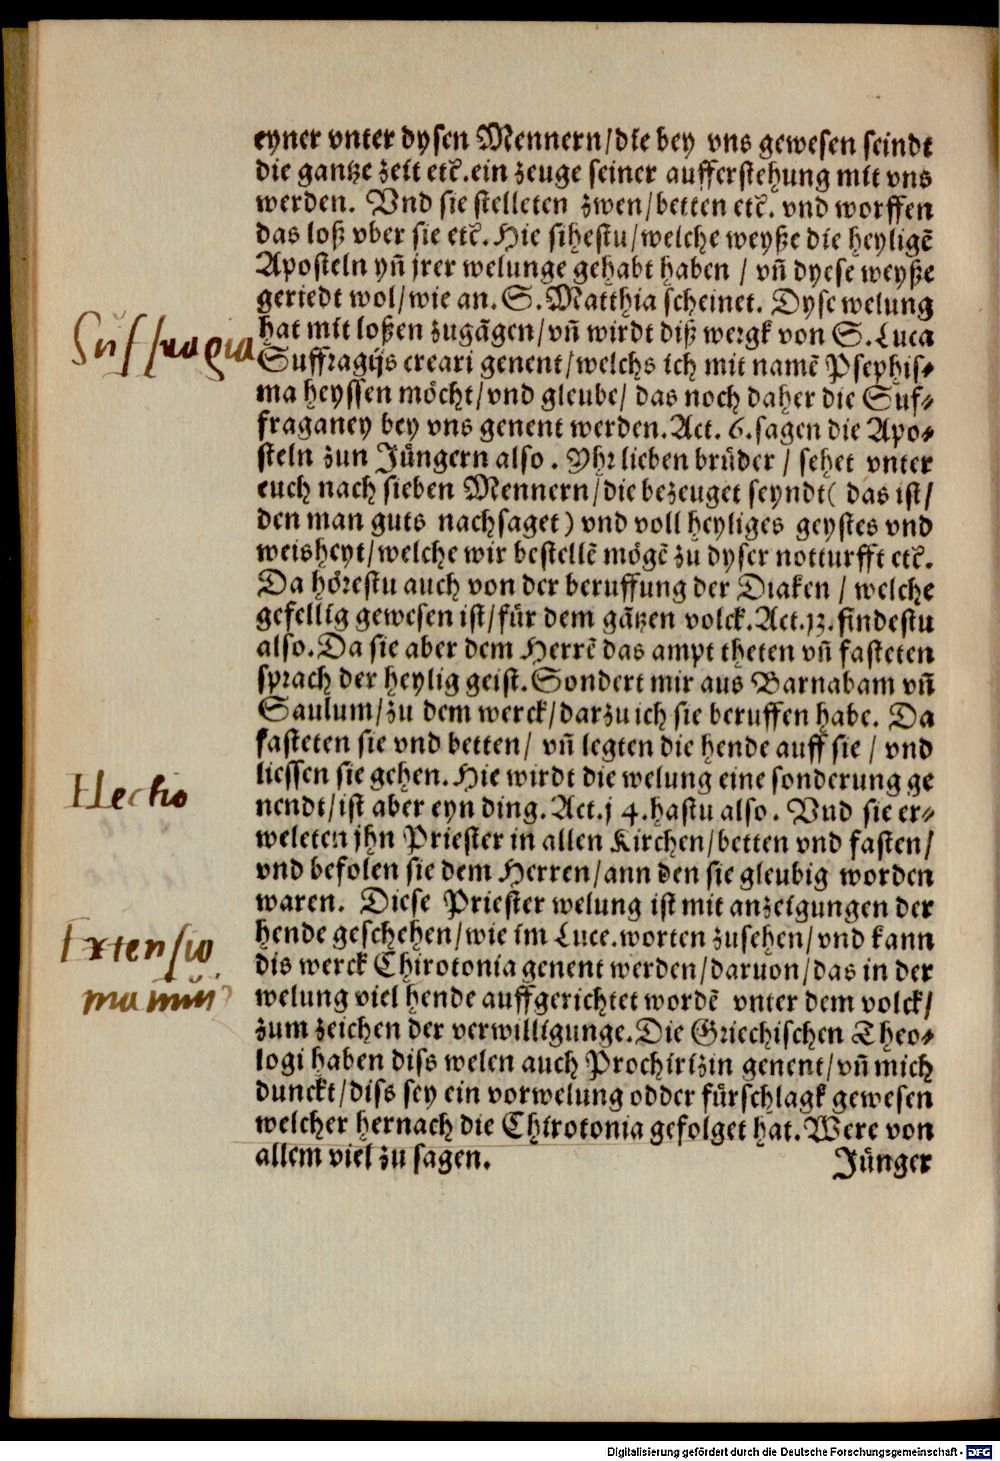 eyner vnter dysen Mennern/die bey vns gewesen seindt
die gantze zeit etc̃.ein zeuge seiner aufferstehung mit vns
werden. Vnd sie stelleten zwen/betten etc̃. vnd worffen
das loß vber sie etc̃. Hie sihestu/welche weyße die heyligẽ
Aposteln yñ jrer welunge gehabt haben / vñ dyese weyße
geriedt wol/wie an. S. Matthia scheinet. Dyse welung
hat mit loßen zugãgen/vñ wirdt diß wergk von S. Luca
Suffragia
Suffragijs creari genent/welchs ich mit namẽ Psephis⸗
ma heyssen möcht/vnd gleube/ das noch daher die Suf⸗
fraganey bey vns genent werden. Act. 6. sagen die Apo⸗
steln zun Jüngern also. Yhr lieben brüder / sehet vnter
euch nach sieben Mennern/die bezeuget seyndt( das ist/
den man guts nachsaget) vnd voll heyliges geystes vnd
weisheyt/welche wir bestellẽ mögẽ zu dyser notturfft etc̃.
Da hörestu auch von der beruffung der Diaken / welche
gefellig gewesen ist/für dem gãtzen volck. Act.13. findestu
also. Da sie aber dem Herrẽ das ampt theten vñ fasteten
sprach der heylig geist. Sondert mir aus Barnabam vñ
Saulum/zu dem werck/darzu ich sie beruffen habe. Da
fasteten sie vnd betten/ vñ legten die hende auff sie / vnd
liessen sie gehen. Hie wirdt die welung eine sonderung ge
Electio
nendt/ist aber eyn ding. Act.14. hastu also. Vnd sie er⸗
weleten jhn Priester in allen Kirchen/betten vnd fasten/
vnd befolen sie dem Herren/ann den sie gleubig worden
waren. Diese Priester welung ist mit anzeigungen der
hende geschehen/wie im Luce. worten zusehen/vnd kann
Extensio
dis werck Chirotonia genent werden/daruon/das in der
manuũ
welung viel hende auffgerichtet wordẽ vnter dem volck/
zum zeichen der verwilligunge. Die Griechischen Theo⸗
logi haben diss welen auch Prochirizin genent/vñ mich
dunckt/diss sey ein vorwelung odder fürschlagk gewesen
welcher hernach die Chirotonia gefolget hat. Were von
allem viel zu sagen.
Jünger
Digitalisierung gefördert durch die Deutsche Forschungsgemeinschaft - DFG